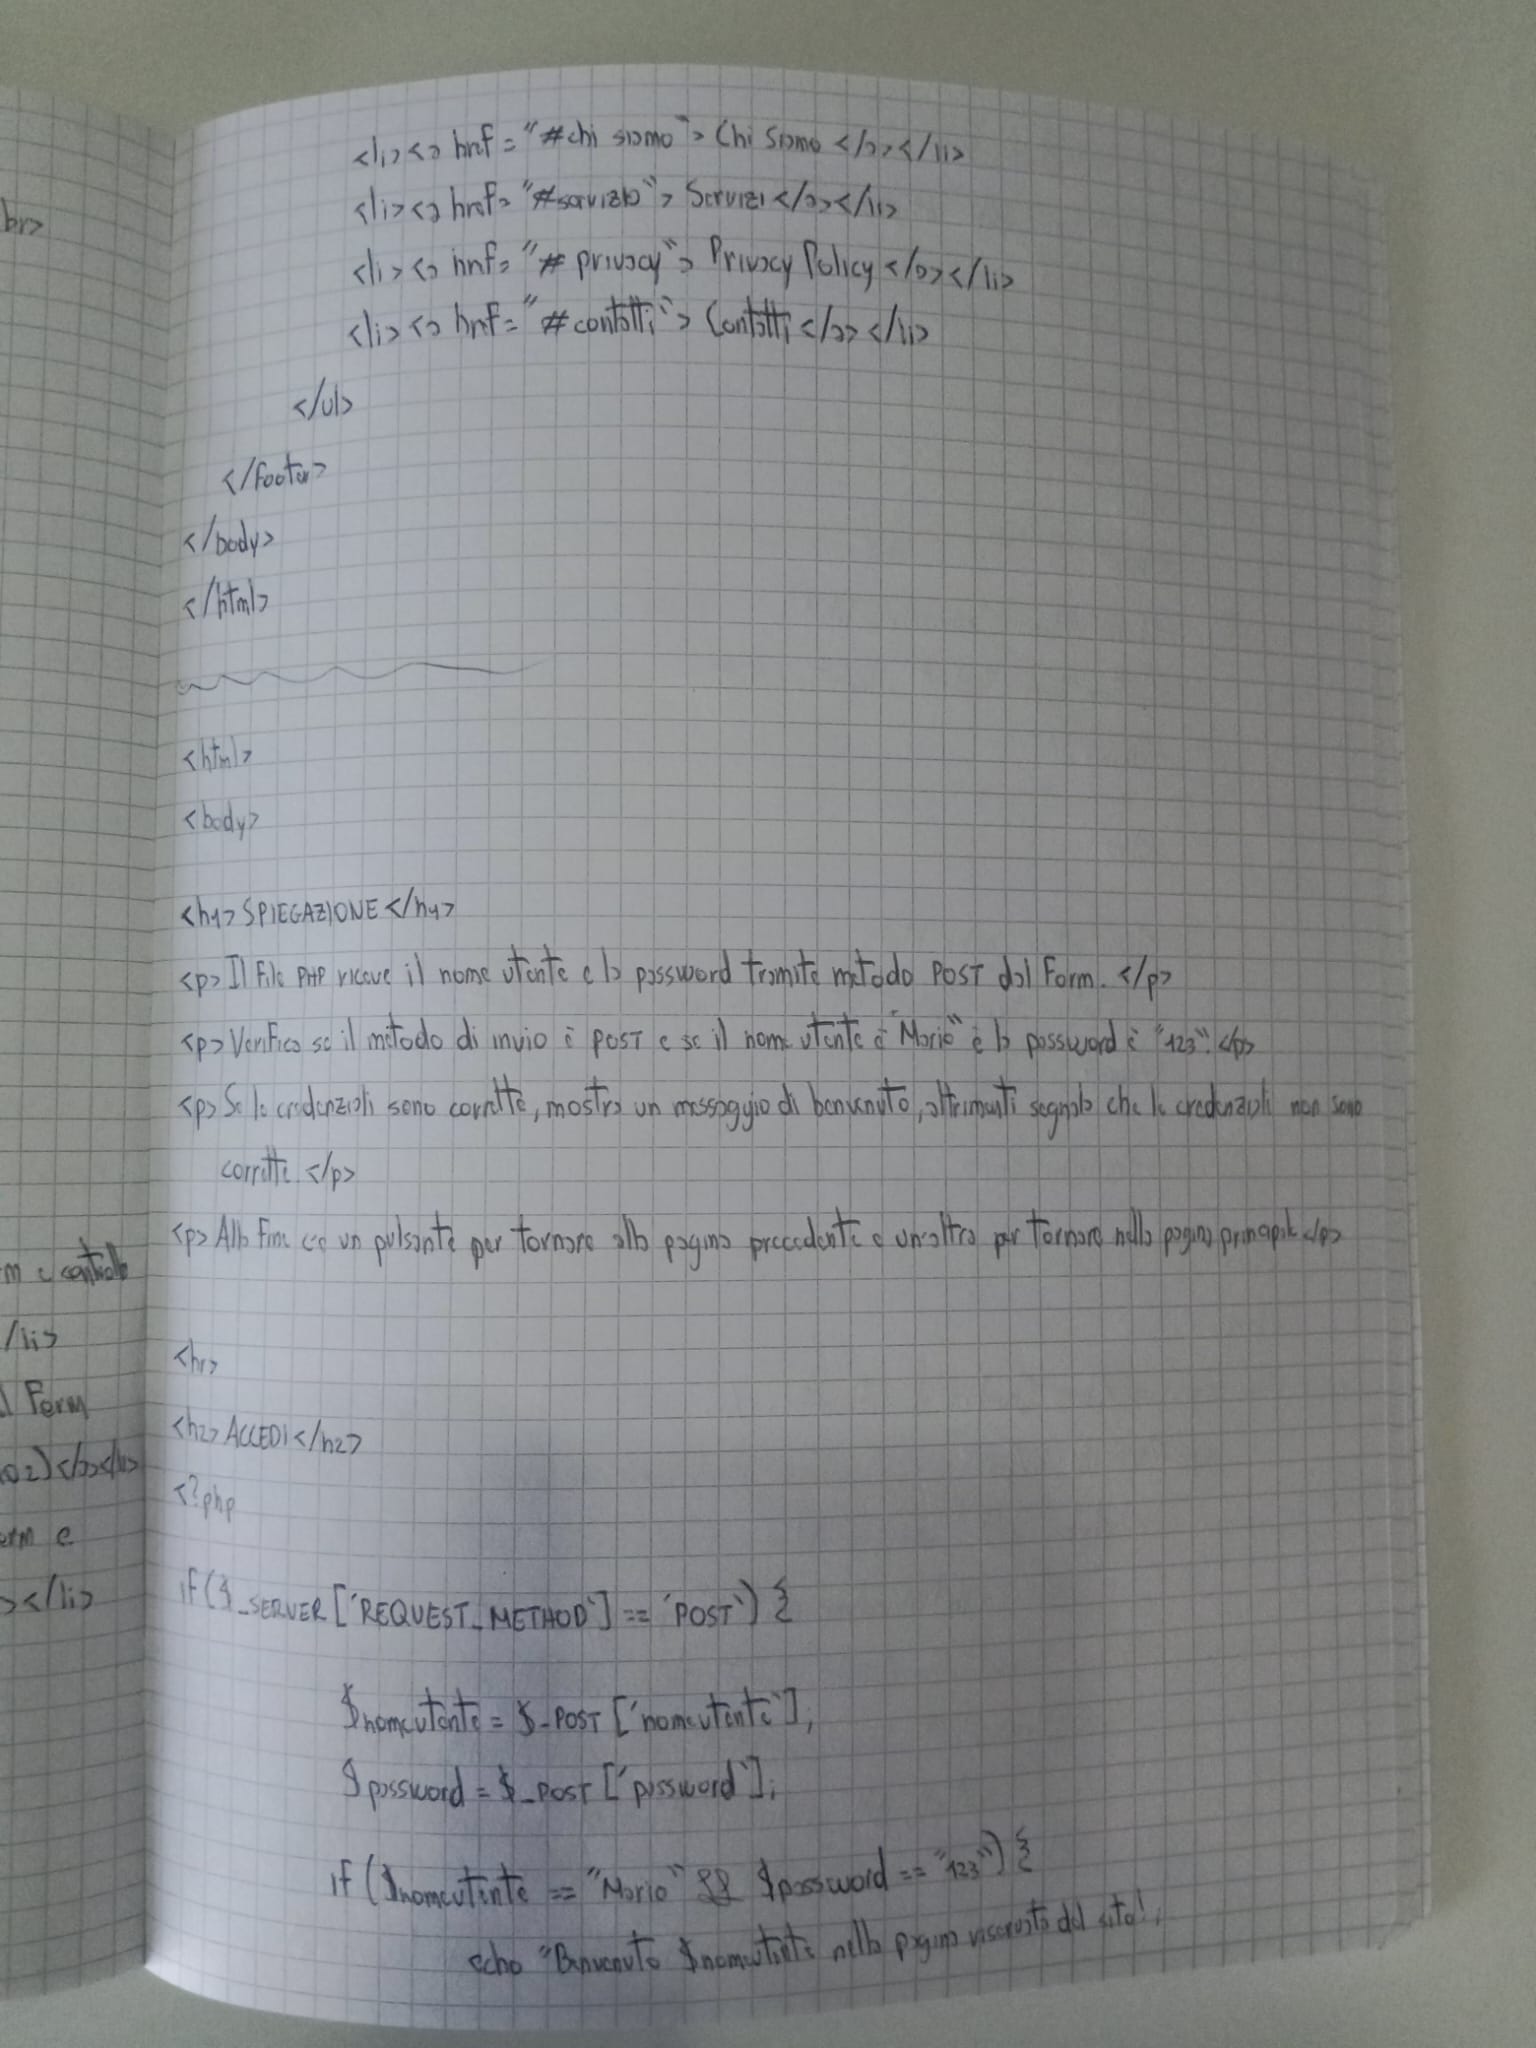 <li><a href="#chi siamo"> Chi Siamo </a></li>
<li><a href="#servizio"> Servizi </a></li>
<li><a href="# privacy"> Privacy Policy </a></li>
<li><a href="#contatti"> Contatti </a></li>
</ul>
</footer>
</body>
</html>
<html>
<body>
<h1> SPIEGAZIONE </h1>
<p> Il File PHP riceve il nome utente e la password tramite metodo POST dal Form. </p>
<p> Verifica se il metodo di invio è POST e se il nome utente è "Mario" e la password è "123". </p>
<p> Se le credenziali sono corrette, mostra un messaggio di benvenuto, altrimenti segnala che le credenziali non sono
corrette. </p>
<p> Alla Fine c'è un pulsante per tornare alla pagina precedente e un'altro per tornare nella pagina principale </p>
<hr>
<h2> ACCEDI </h2>
<?php
if ($_SERVER ['REQUEST_METHOD'] == 'POST') {
$nomeutente = $_POST ['nomeutente'];
$password = $_POST ['password'];
if ($nomeutente == "Mario" && $password == "123") {
echo "Benvenuto $nomeutente nella pagina riservata del sito!;
br>
m e controlla
/li>
l Form
02)</a></li>
orm e
></li>